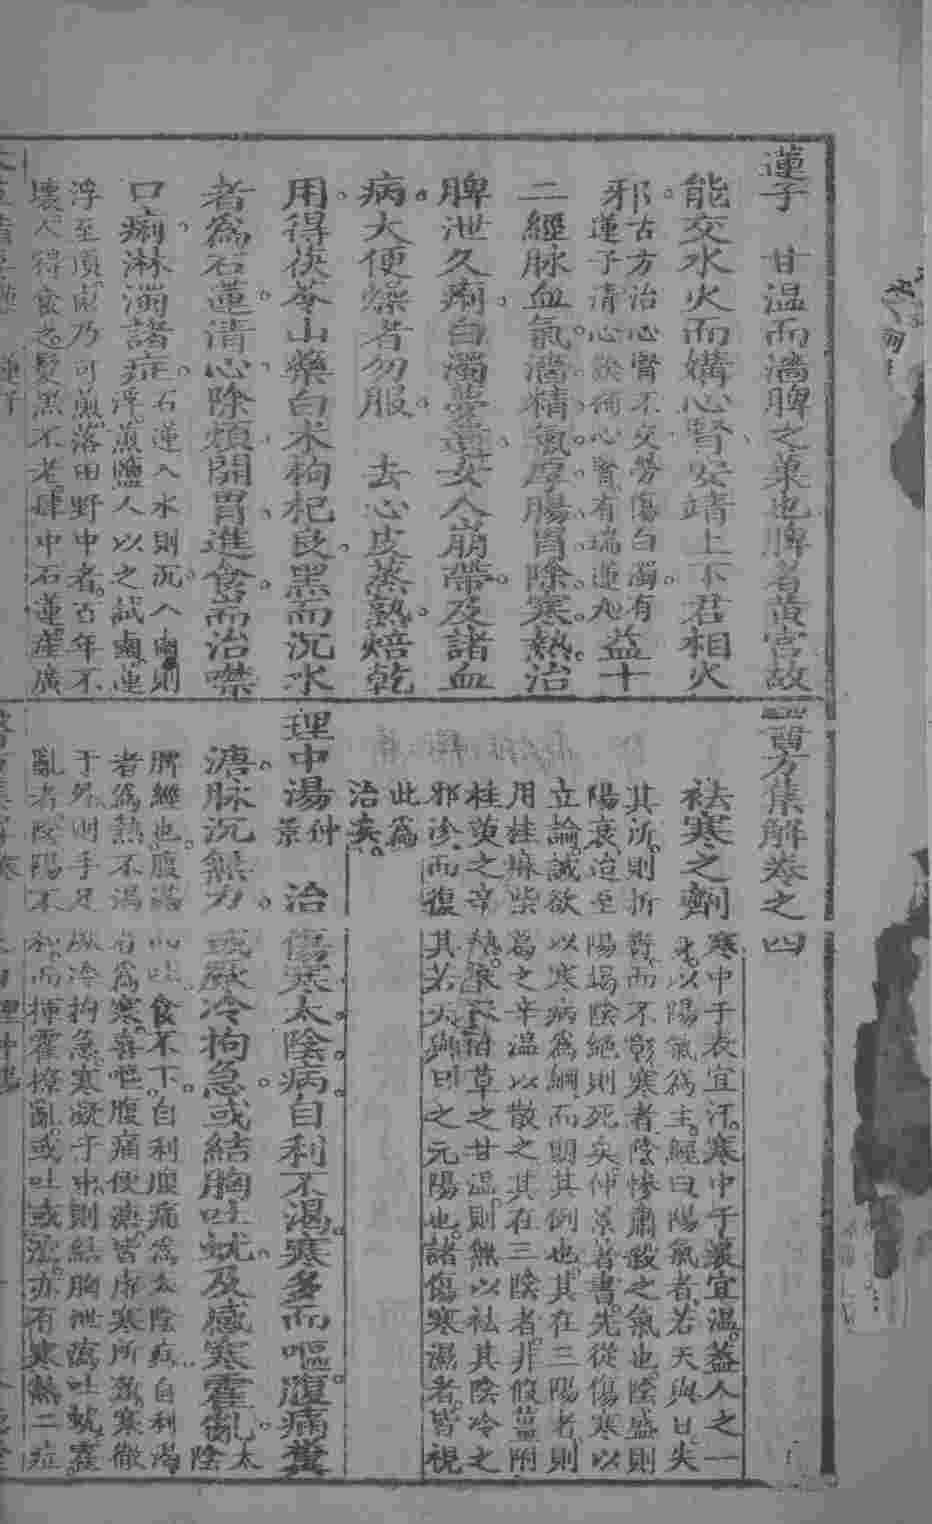 蓮子　甘温而濇脾之菓也脾者黃宮故
能交水火而媾心腎安靖上下君相火
邪
古方治心腎不交勞傷白濁有
蓮子清心飲補心腎有瑞蓮丸
益十
二經脉血氣濇精氣厚腸胃除寒熱治
脾泄久痢白濁夢遺女人崩帶及諸血
病大便燥者勿服　去心皮蒸熟焙乾
用得茯苓山藥白术枸杞良黑而沉水
者爲石蓮清心除煩開胃進食而治噤
口痢淋濁諸症
石蓮入水則沉入鹵則
浮煎鹽人以之試鹵蓮
浮至頂鹵乃可煎落田野中者百年不
壞人得食之髮黑不老肆中石蓮產廣
醫方集解卷之四
祛寒之劑
寒中于表宜汗寒中于裏宜温葢人之一
身以陽氣爲主經曰陽氣者若天與日失
其所則折壽而不彰寒者陰慘肅殺之氣也陰盛則
陽衰迨至陽竭陰絕則死矣仲景著書先從傷寒以
立論誠欲以寒病爲綱而明其例也其在三陽者則
用桂麻柴葛之辛温以散之其在三陰者非假薑附
桂萸之辛熱參术甘草之甘温則無以祛其陰冷之
邪沴而復其若天與日之元陽也諸傷寒濕者皆視
此爲
治矣
理中湯
仲景
治傷寒太陰病自利不渴寒多而嘔腹痛糞
溏脉沉無力或厥冷拘急或結胸吐蚘及感寒霍亂
太陰
脾經也腹滿而吐食不下自利腹痛爲太陰病自利渴
者爲熱不渴者爲寒喜嘔腹痛便溏皆虛寒所致寒徹
于外則手足厥冷拘急寒凝于中則結胸泄瀉吐蚘霍
亂者陰陽不和而揮霍撩亂或吐或瀉亦有寒熱二症